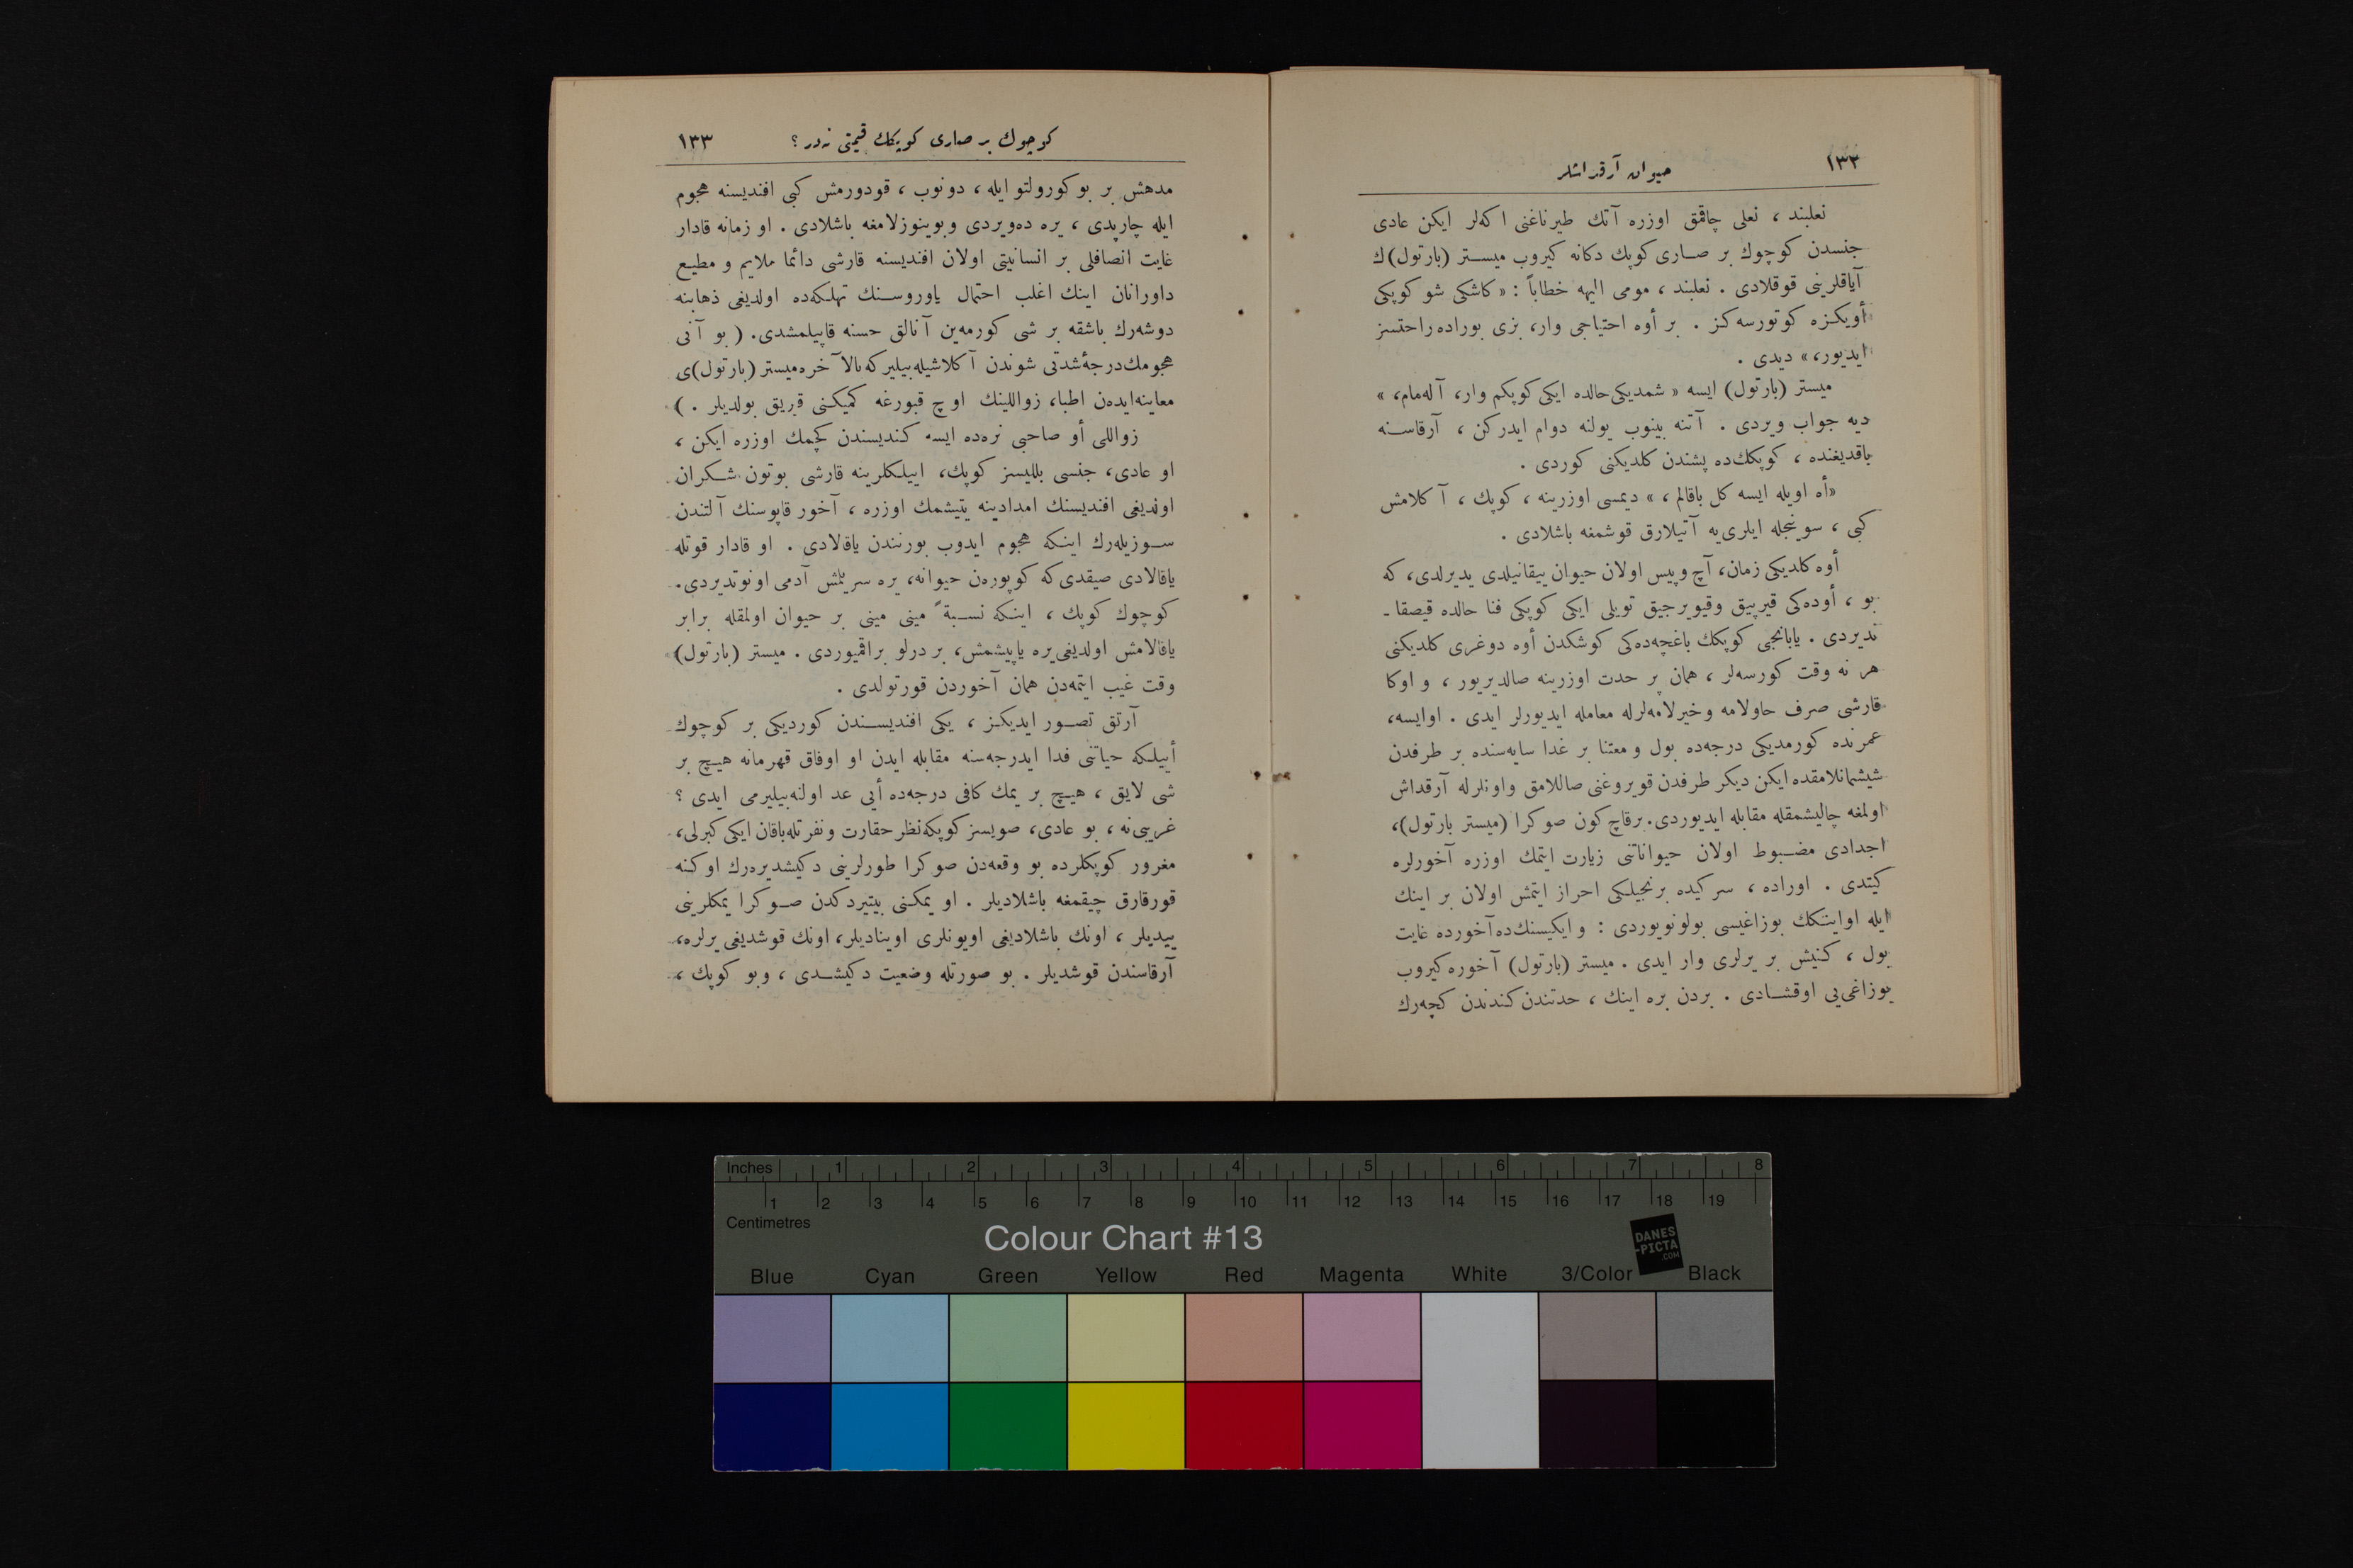 ١٣٢
حیوان آرقداشلر
نعلبند ، نعلی چاقمق اوزره آتك طیرناغنی اكه‌لر ایكن عادی
جنسدن كوچوك بر صاری كوپك دكانه كیروب میستر (بارتول)ك
آیاقلرینی قوقلادی . نعلبند ، مومی الیهه خطاباً : « كاشكی شو كوپكی
أویكزه كوتورسه‌كز . بر أوه احتیاجی وار، بزی بوراده راحتسز
ایدیور، » دیدی .
میستر (بارتول) ایسه « شمدیكی حالده ایكی كوپكم وار، آله‌مام، »
دیه جواب ویردی . آتنه بینوب یولنه دوام ایدركن ، آرقاسنه
باقدیغنده ، كوپكك‌ده پشندن كلدیكنی كوردی .
«أه اویله ایسه كل باقالم ، » دیمسی اوزرینه ، كوپك ، آكلامش
كبی ، سوینجله ایلری‌یه آتیلارق قوشمغه باشلادی .
أوه كلدیكی زمان، آچ وپیس اولان حیوان ییقانیلدی یدیرلدی، كه
بو ، أوده‌كی قیرپیق وقیویرجیق تویلی ایكی كوپكی فنا حالده قیصقا ـ
ندیردی . یابانجی كوپكك باغچه‌ده‌كی كوشكدن أوه دوغری كلدیكنی
هر نه وقت كورسه‌لر ، همان بر حدت اوزرینه صالدیریور ، و اوكا
قارشی صرف حاولامه وخیرلامه‌لرله معامله ایدیورلر ایدی . اوایسه،
عمرنده كورمدیكی درجه‌ده بول ومعتنا بر غدا سایه‌سنده بر طرفدن
شیشمانلامقده ایكن دیكر طرفدن قویروغنی صاللامق واونلرله آرقداش
اولمغه چالیشمقله مقابله ایدیوردی. برقاچ كون صوكرا (میستر بارتول)،
اجدادی مضبوط اولان حیواناتنی زیارت ایتمك اوزره آخورلره
كیتدی . اوراده ، سركیده برنجیلكی احراز ایتمش اولان بر اینك
ایله اواینكك بوزاغیسی بولونویوردی : و ایكیسنك‌ده آخورده غایت
بول ، كنیش بر یرلری وار ایدی . میستر (بارتول) آخوره كیروب
بوزاغی‌یی اوقشادی . بردن بره اینك ، حدتندن كندندن كچه‌رك
كوچوك بر صاری كوپكك قیمتی نه‌در ؟
١٣٣
مدهش بر بوكورولتو ایله ، دونوب ، قودورمش كبی افندیسنه هجوم
ایله چارپدی ، یره ده‌ویردی وبوینوزلامغه باشلادی . او زمانه قادار
غایت انصافلی بر انسانیتی اولان افندیسنه قارشی دائما ملایم و مطیع
داورانان اینك اغلب احتمال یاوروسنك تهلكه‌ده اولدیغی ذهابنه
دوشه‌رك باشقه بر شی كورمه‌ین آنالق حسنه قاپیلمشدی. ( بو آنی
هجومك درجۀ شدتی شوندن آكلاشیله بیلیر كه بالآخره میستر (بارتول)ی
معاینه ایده‌ن اطبا، زواللینك اوچ قبورغه كمیكنی قیریق بولدیلر . )
زواللی أو صاحبی نره‌ده ایسه كندیسندن كچمك اوزره ایكن ،
او عادی، جنسی بللیسز كوپك، اییلكلرینه قارشی بوتون شكران
اوندیغی افندیسنك امدادینه یتیشمك اوزره ، آخور قاپوسنك آلتندن
سوزیله‌رك اینكه هجوم ایدوب بورنندن یاقالادی . او قادار قوتله
یاقالادی صیقدی كه كوپوره‌ن حیوانه، یره سریلمش آدمی اونوتدیردی.
كوچوك كوپك ، اینكه نسبةً مینی مینی بر حیوان اولمقله برابر
یاقالامش اولدیغی یره یاپیشمش، بر درلو براقمیوردی . میستر (بارتول)
وقت غیب ایتمه‌دن همان آخوردن قورتولدی .
آرتق تصور ایدیكز ، یكی افندیسندن كوردیكی بر كوچوك
أییلكه حیاتنی فدا ایدرجه‌سنه مقابله ایدن او اوفاق قهرمانه هیچ بر
شی لایق ، هیچ بر یمك كافی درجه‌ده أیی عد اولنه‌بیلیرمی ایدی ؟
غریبی نه ، بو عادی، صویسز كوپكه نظر حقارت ونفرتله باقان ایكی كبرلی،
مغرور كوپكلرده بو وقعه‌دن صوكرا طورلرینی دكیشدیره‌رك اوكنه
قورقارق چیقمغه باشلادیلر . او یمكنی بیتیردكدن صوكرا یمكلرینی
ییدیلر ، اونك باشلادیغی اویونلری اوینادیلر، اونك قوشدیغی یرلره،
آرقاسندن قوشدیلر . بو صورتله وضعیت دكیشدی ، وبو كوپك ،
Inches 1 2 3 4 5 6 7 8
1 2 3 4 5 6 7 8 9 10 11 12 13 14 15 16 17 18 19
Centimetres
Colour Chart #13
DANES
-PICTA
.COM
Blue Cyan Green Yellow Red Magenta White 3/Color Black